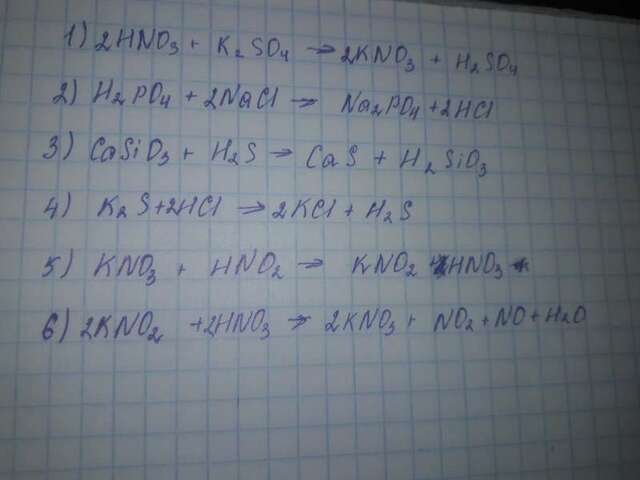 1) 2HNO₃ + K₂SO₄ → 2KNO₃ + H₂SO₄
2) H₂PO₄ + 2NaCl → Na₂PO₄ + 2HCl
3) CaSiO₃ + H₂S → CaS + H₂SiO₃
4) K₂S + 2HCl → 2KCl + H₂S
5) KNO₃ + HNO₂ → KNO₂ + HNO₃
6) 2KNO₂ + 2HNO₃ → 2KNO₃ + NO₂ + NO + H₂O